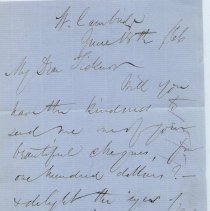 W. Cambridge
June 18th /66
My Dear Ticknor
Will you
have the kindness to
send me one of your
beautiful cheques, for
one hundred dollars? —
& delight the eyes of